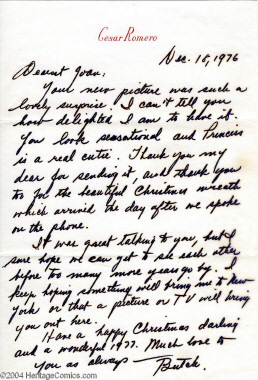 Cesar Romero
Dec. 15, 1976
Dearest Joan:
Your new picture was such a
lovely surprise. I can't tell you
how delighted I am to have it.
You look sensational and Princess
is a real cutie. Thank you my
dear for sending it and thank you
too for the beautiful Christmas wreath
which arrived the day after we spoke
on the phone.
It was great talking to you, but I
sure hope we can get to see each other
before too many more years go by. I
keep hoping something will bring me to New
York or that a picture or TV will bring
you out here.
Have a happy Christmas darling
and a wonderful 1977. Much love to
you as always Butch.
©2004 HeritageComics.com